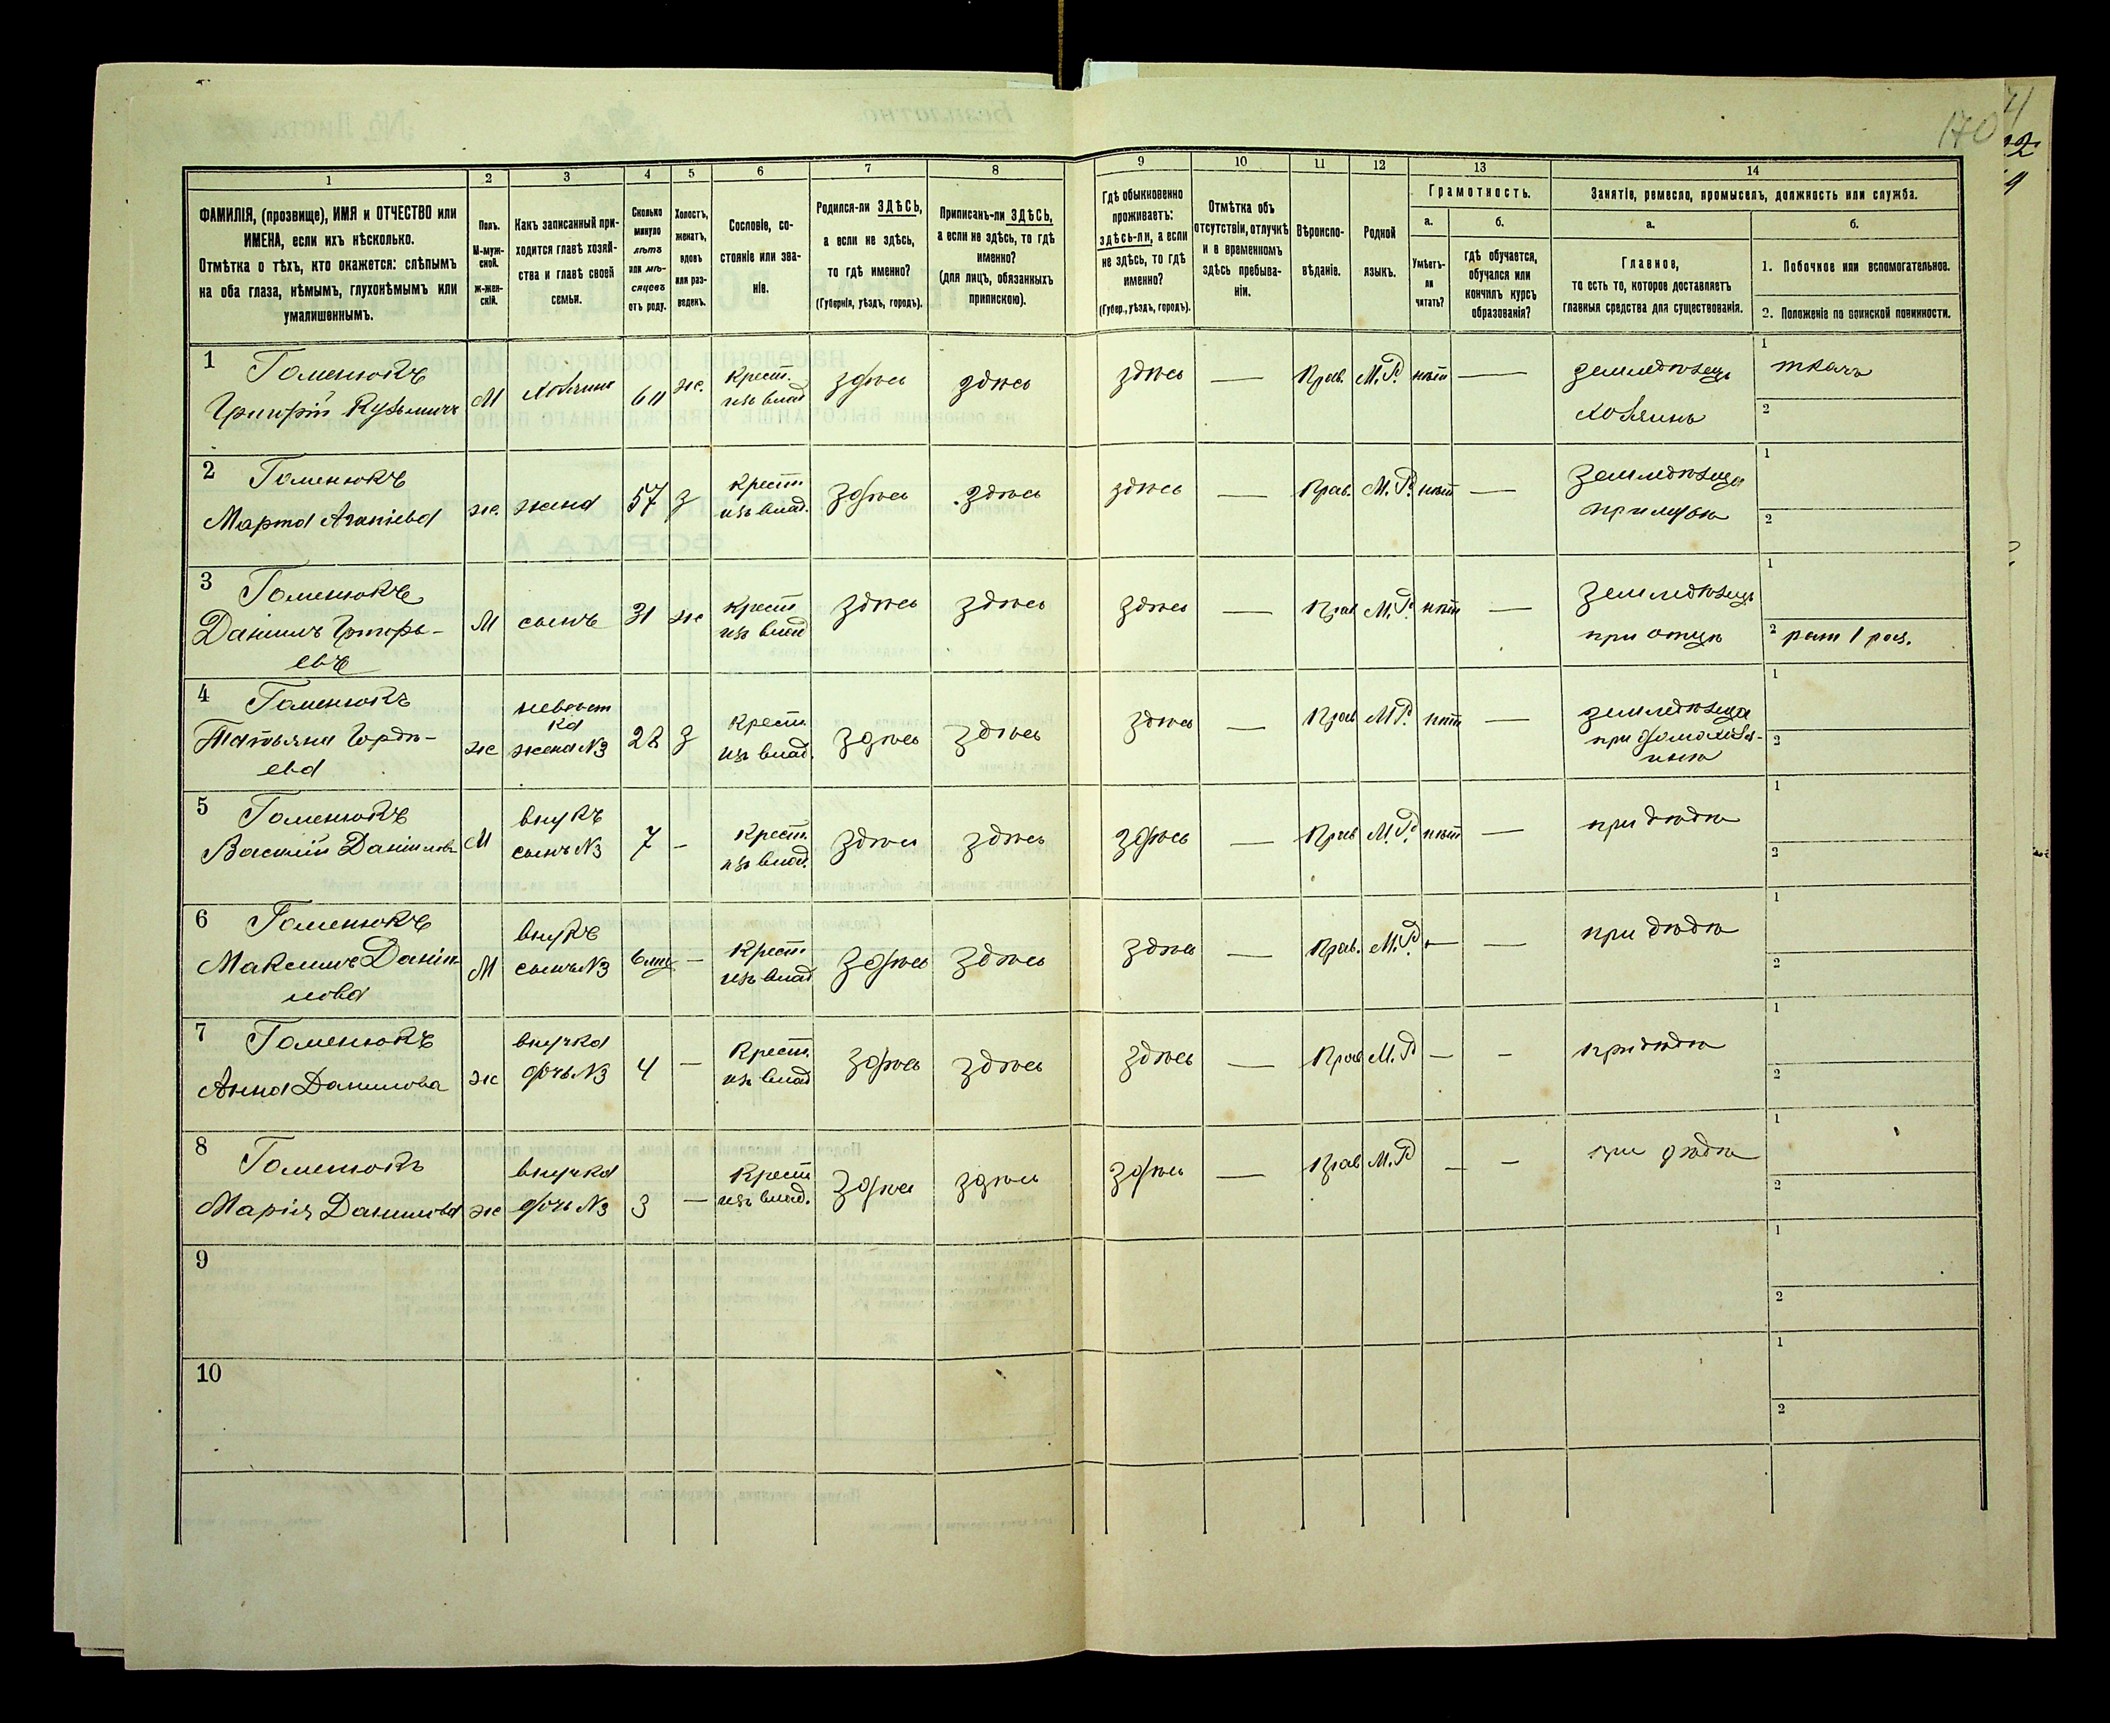 170
1 2 3 4 5 6 7 8 9 10 11 12 13 14
ФАМИЛІЯ, (прозвище), ИМЯ и ОТЧЕСТВО или
ИМЕНА, если ихъ нѣсколько.
Отмѣтка о тѣхъ, кто окажется: слѣпымъ
на оба глаза, нѣмымъ, глухонѣмымъ или
умалишеннымъ.
Полъ.
М-муж-
ской.
ж-жен-
скій.
Какъ записанный при-
ходится главѣ хозяй-
ства и главѣ своей
семьи.
Сколько
минуло
лѣтъ
или мѣ-
сяцевъ
отъ роду.
Холостъ,
женатъ,
вдовъ
или раз-
веденъ.
Сословіе, со-
стояніе или зва-
ніе.
Родился-ли ЗДѢСЬ,
а если не здѣсь,
то гдѣ именно?
(Губернія, уѣздъ, городъ).
Приписанъ-ли ЗДѢСЬ,
а если не здѣсь, то гдѣ
именно?
(для лицъ, обязанныхъ
припискою).
Гдѣ обыкновенно
проживаетъ:
здѣсь-ли, а если
не здѣсь, то гдѣ
именно?
(Губер., уѣздъ, городъ).
Отмѣтка объ
отсутствіи, отлучкѣ
и о временномъ
здѣсь пребыва-
ніи.
Вѣроиспо-
вѣданіе.
Родной
языкъ.
Грамотность.
а.
Умѣетъ-
ли
читать?
б.
гдѣ обучается,
обучался или
кончилъ курсъ
образованія?
Занятія, ремесло, промыселъ, должность или служба.
а.
Главное,
то есть то, которое доставляетъ
главныя средства для существованія.
б.
1. Побочное или вспомогательное.
2. Положеніе по воинской повинности.
1 Гоменюкъ
Григорій Кузьмичъ М хозяинъ ж. Крест. изъ влад здѣсь здѣсь здѣсь — Прав. М.Р. нѣт — земледѣлецъ хозяинъ 1 ткачъ 2
2 Гоменюкъ
Марта жс. жена 57 з Крест изъ влад. здѣсь здѣсь здѣсь — Прав. М.Р. нѣт — земледѣлеца при мужѣ 1 2
3 Гоменюкъ
Даніилъ Григорь-
евъ М сынъ 31 ж Крест изъ влад здѣсь здѣсь здѣсь — Прав М.Р. нѣт — земледѣлецъ при отцѣ 1 2 рат 1 раз.
4 Гоменюкъ
Татьяна Горди-
ева ж невѣст
ка
жена №3 28 з Крест изъ влад. здѣсь здѣсь здѣсь — Прав М.Р. нѣт — земледѣлеца
при домохозя-
инѣ 1 2
5 Гоменюкъ
Василій Даниловъ М внукъ
сынъ №3 7 — Крест. изъ влад. здѣсь здѣсь здѣсь — Прав М.Р. нѣт — при дѣдѣ 1 2
6 Гоменюкъ
Максимъ Дани-
лова М внукъ
сынъ №3 6 мц — Крест. изъ влад здѣсь здѣсь здѣсь — Прав. М.Р. — — при дѣдѣ 1 2
7 Гоменюкъ
Анна Данилова ж внучка
дочь №3 4 — Крест. изъ влад здѣсь здѣсь здѣсь — Прав М.Р — — при дѣдѣ 1 2
8 Гоменюкъ
Марія Данилова ж внучка
дочь №3 3 — Крест изъ влад. здѣсь здѣсь здѣсь — Прав М.Р — — при дѣдѣ 1 2
9 1 2
10 1 2